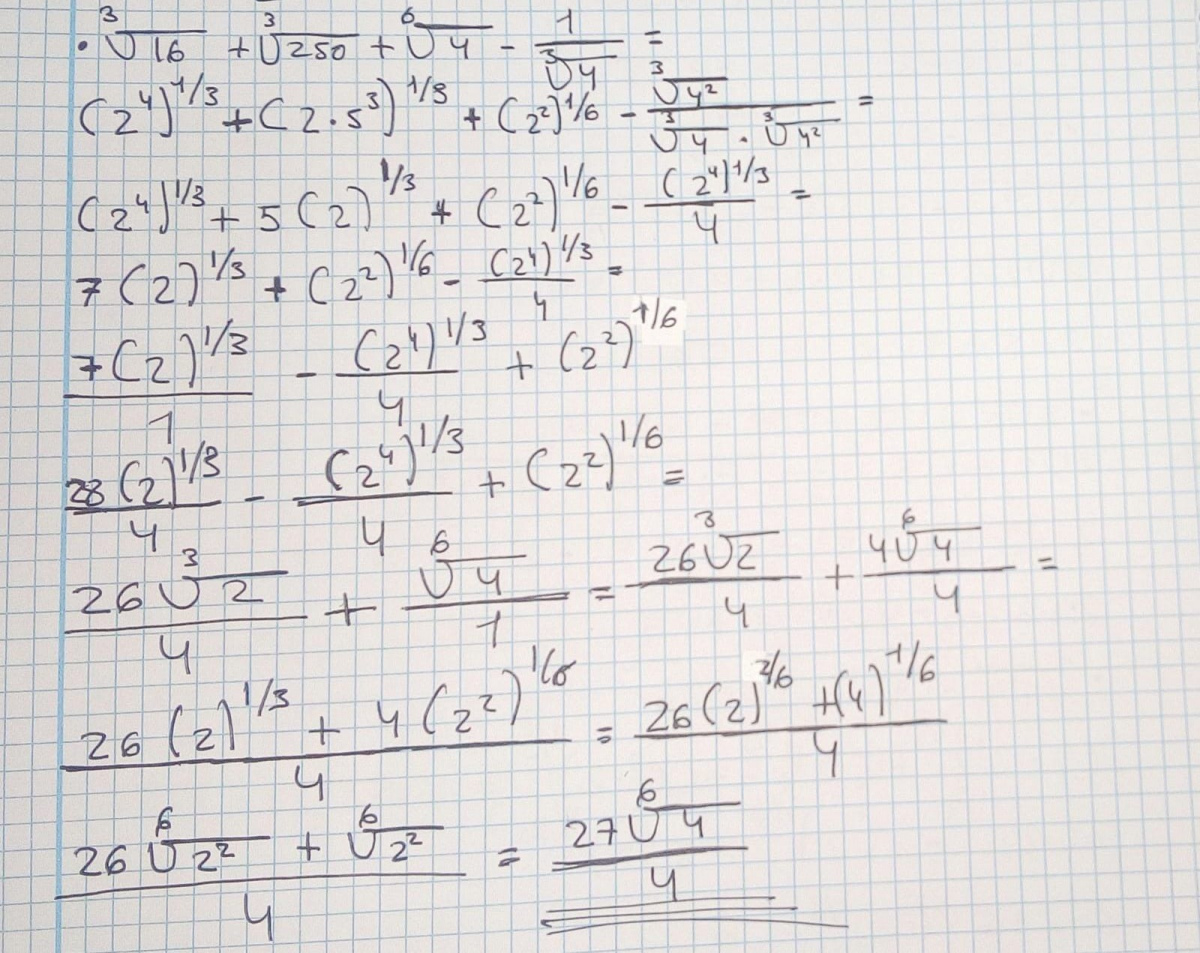 • ∛16 + ∛250 + ⁶√4 - 1/∛4 =
(2⁴)^1/3 + (2·5³)^1/3 + (2²)^1/6 - ∛4²/(∛4 · ∛4²) =
(2⁴)^1/3 + 5(2)^1/3 + (2²)^1/6 - (2⁴)^1/3/4 =
7(2)^1/3 + (2²)^1/6 - (2⁴)^1/3/4 =
7(2)^1/3/1 - (2⁴)^1/3/4 + (2²)^1/6
28(2)^1/3/4 - (2⁴)^1/3/4 + (2²)^1/6 =
26∛2/4 + ⁶√4/1 = 26∛2/4 + 4⁶√4/4 =
(26(2)^1/3 + 4(2²)^1/6)/4 = (26(2)^2/6 + (4)^1/6)/4
(26⁶√2² + ⁶√2²)/4 = 27⁶√4/4